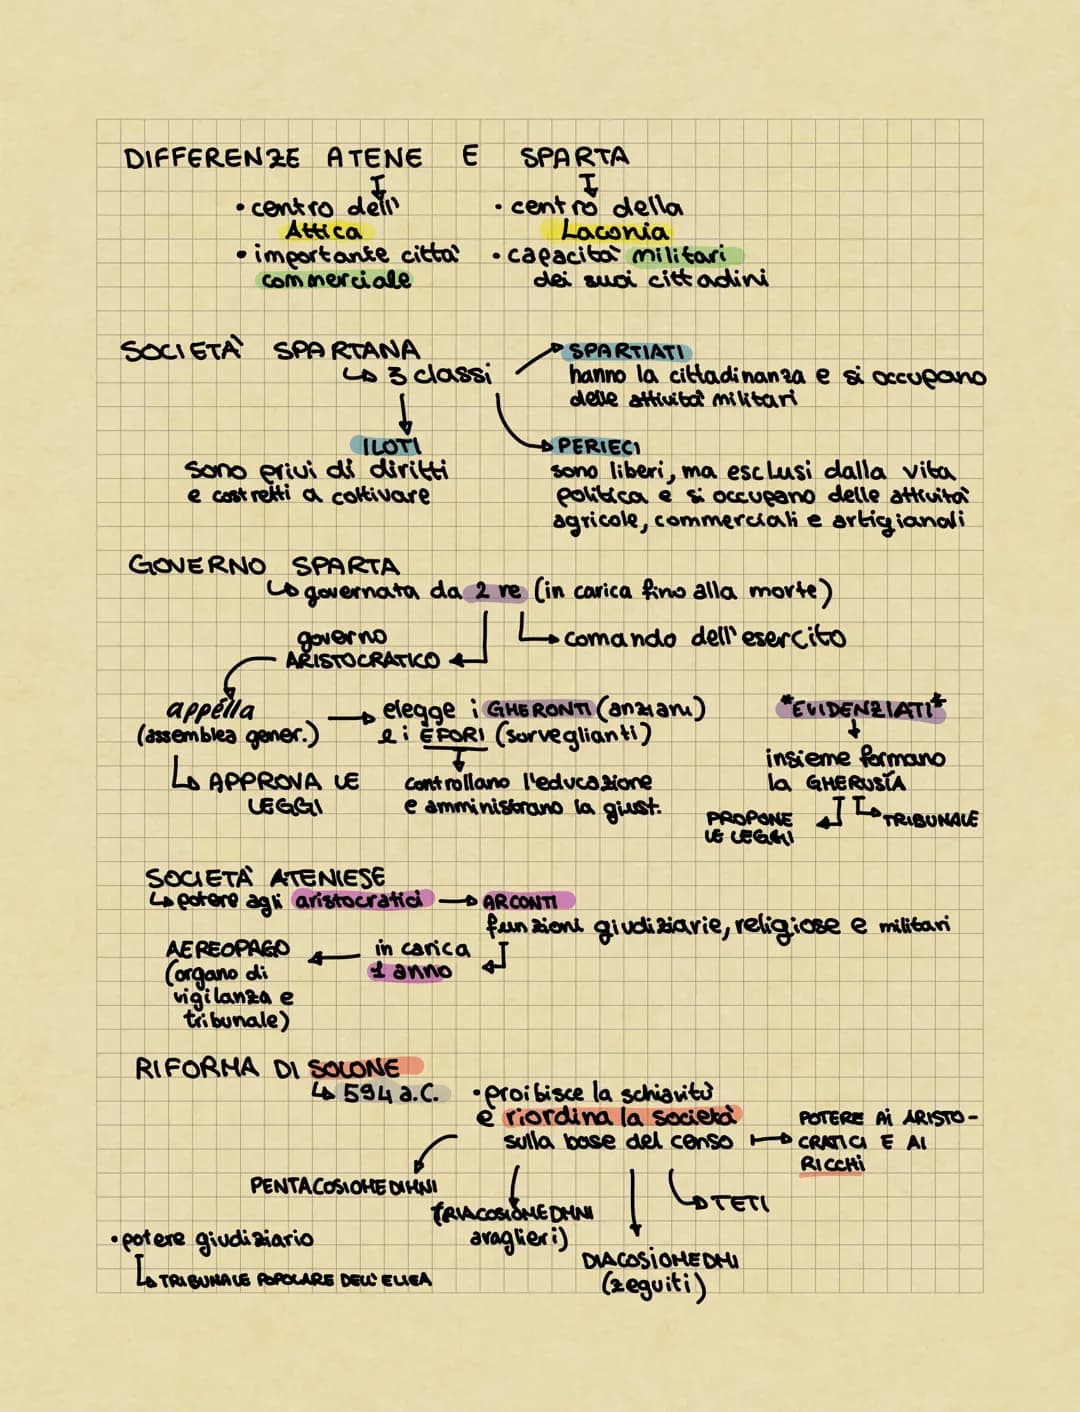 DIFFERENZE ATENE E SPARTA
• centro dell'
Attica
• importante città
commerciale
• centro della
Laconia
• capacità militari
dei suoi cittadini
SOCIETÀ SPARTANA
↳ 3 classi
SPARTIATI
hanno la cittadinanza e si occupano
delle attività militari
ILOTI
sono privi di diritti
e costretti a coltivare
PERIECI
sono liberi, ma esclusi dalla vita
politica e si occupano delle attività
agricole, commerciali e artigianali
GOVERNO SPARTA
↳ governata da 2 re (in carica fino alla morte)
governo
ARISTOCRATICO
comando dell'esercito
appélla
(assemblea gener.)
↳ APPROVA LE
LEGGI
elegge i GHERONTI (anziani)
e i EFORI (sorveglianti)
controllano l'educazione
e amministrano la giust.
*EVIDENZIATI*
insieme formano
la GHERUSÍA
PROPONE
LE LEGGI
TRIBUNALE
SOCIETÀ ATENIESE
↳ potere agli aristocratici → ARCONTI
funzioni giudiziarie, religiose e militari
in carica
1 anno
AEREOPAGO
(organo di
vigilanza e
tribunale)
RIFORMA DI SOLONE
↳ 594 a.C.
• proibisce la schiavitù
e riordina la società
sulla base del censo
POTERE Ai ARISTO-
CRATICI E AI
RICCHI
PENTACOSIOMEDIMNI
TRIACOSIOMEDMNI
avaglieri)
DIACOSIOMEDMI
(zeguiti)
TETI
• potere giudiziario
↳ TRIBUNALE POPOLARE DELL'ELIEA